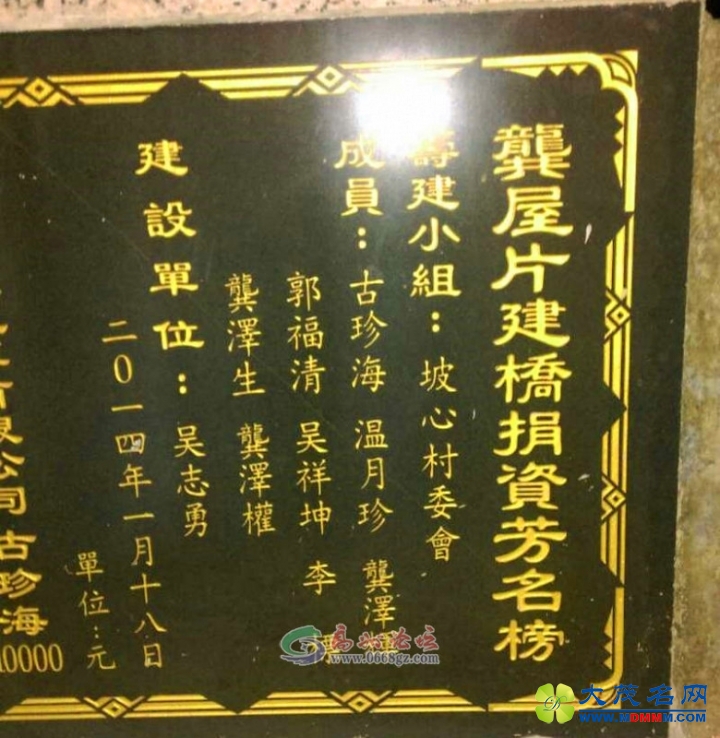 龔屋片建橋捐資芳名榜
籌建小組：坡心村委會
成員：古珍海 温月珍 龔澤
郭福清 吴祥坤 李
龔澤生 龔澤權
建設單位：吴志勇
二0一四年一月十八日
單位：元
有限公司 古珍海
10000
高州论坛
www.0668gz.com
大茂名网
www.MDMMM.com